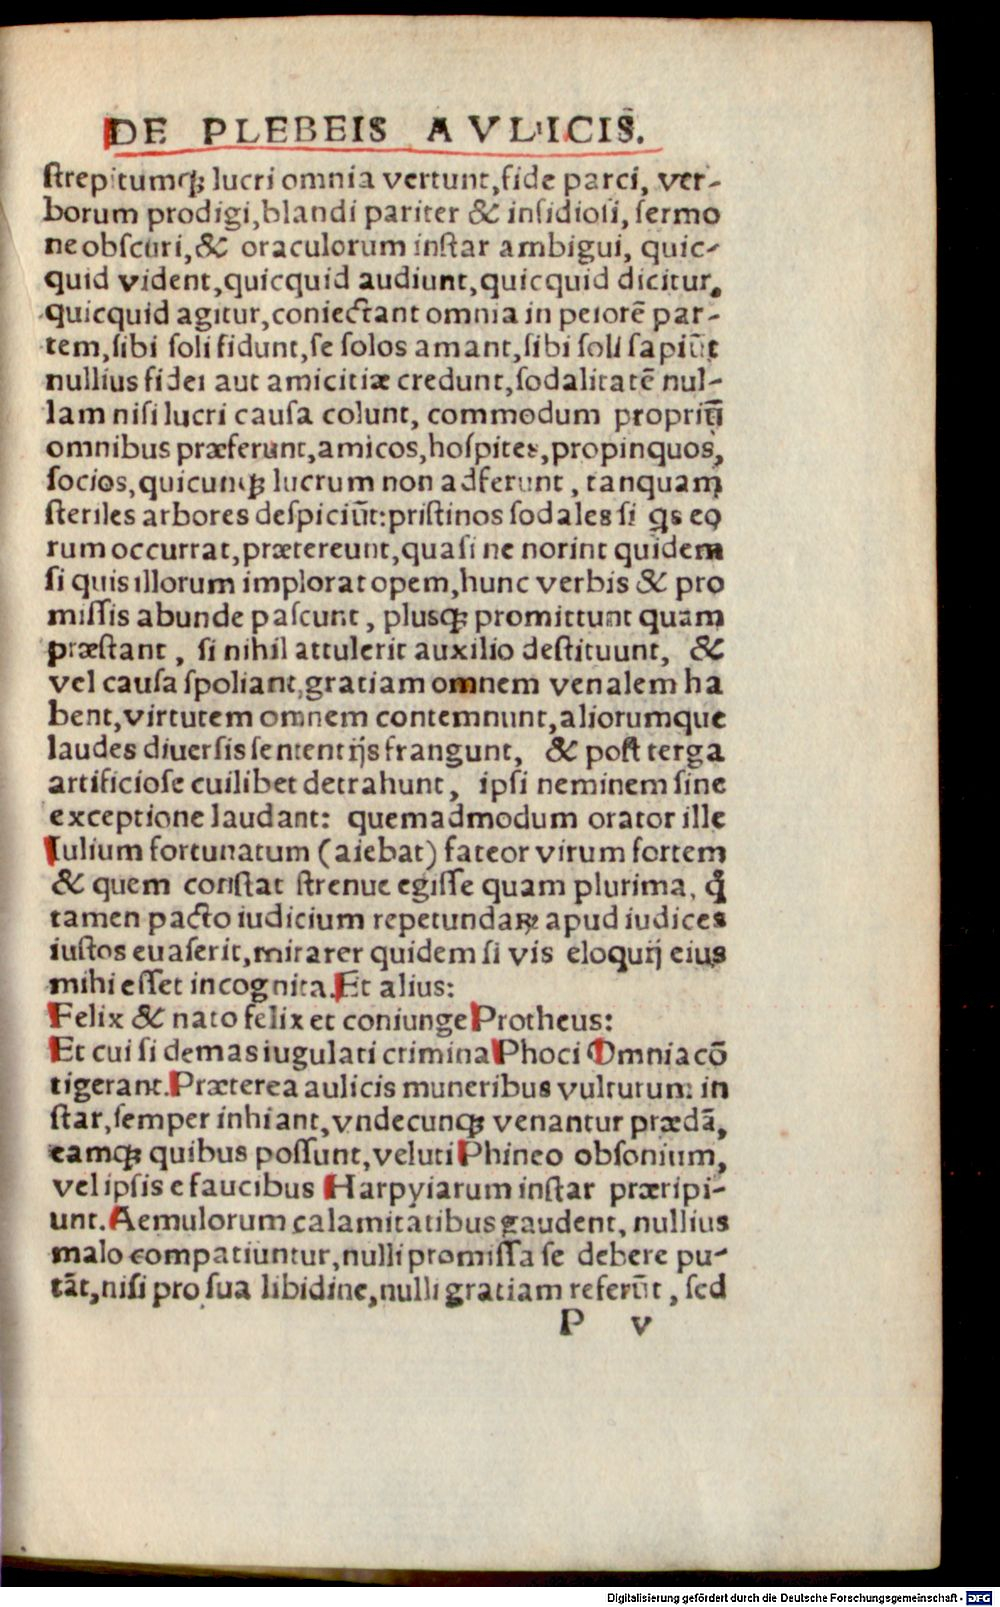 DE PLEBEIS AVLICIS.
ſtrepitumqꝫ lucri omnia vertunt,fide parci, ver-
borum prodigi,blandi pariter & inſidioſi, ſermo
ne obſcuri,& oraculorum inſtar ambigui, quic-
quid vident,quicquid audiunt,quicquid dicitur,
quicquid agitur,coniectant omnia in peiorē par-
tem,ſibi ſoli fidunt,ſe ſolos amant,ſibi ſoli ſapiūt
nullius fidei aut amicitiæ credunt,ſodalitatē nul-
lam niſi lucri cauſa colunt, commodum propriū
omnibus præferunt,amicos,hoſpites,propinquos,
ſocios,quicunqꝫ lucrum non adferunt, tanquam
ſteriles arbores deſpiciūt:priſtinos ſodales ſi qs eo
rum occurrat,prætereunt,quaſi ne norint quidem
ſi quis illorum implorat opem,hunc verbis & pro
miſſis abunde paſcunt, plusqꝫ promittunt quam
præſtant, ſi nihil attulerit auxilio deſtituunt, &
vel cauſa ſpoliant,gratiam omnem venalem ha
bent,virtutem omnem contemnunt,aliorumque
laudes diuerſis ſententijs frangunt, & poſt terga
artificioſe cuilibet detrahunt, ipſi neminem ſine
exceptione laudant: quemadmodum orator ille
Iulium fortunatum (aiebat) fateor virum fortem
& quem conſtat ſtrenue egiſſe quam plurima, q̊
tamen pacto iudicium repetundaꝝ apud iudices
iuſtos euaſerit,mirarer quidem ſi vis eloquij eius
mihi eſſet incognita.Et alius:
Felix & nato felix et coniunge Protheus:
Et cui ſi demas iugulati crimina Phoci Omnia cō
tigerant.Præterea aulicis muneribus vulturum in
ſtar,ſemper inhiant,vndecunqꝫ venantur prædā,
eamqꝫ quibus poſſunt,veluti Phineo obſonium,
vel ipſis e faucibus Harpyiarum inſtar præripi-
unt.Aemulorum calamitatibus gaudent, nullius
malo compatiuntur,nulli promiſſa ſe debere pu-
tāt,niſi pro ſua libidine,nulli gratiam referūt, ſed
P v
Digitalisierung gefördert durch die Deutsche Forschungsgemeinschaft - DFG